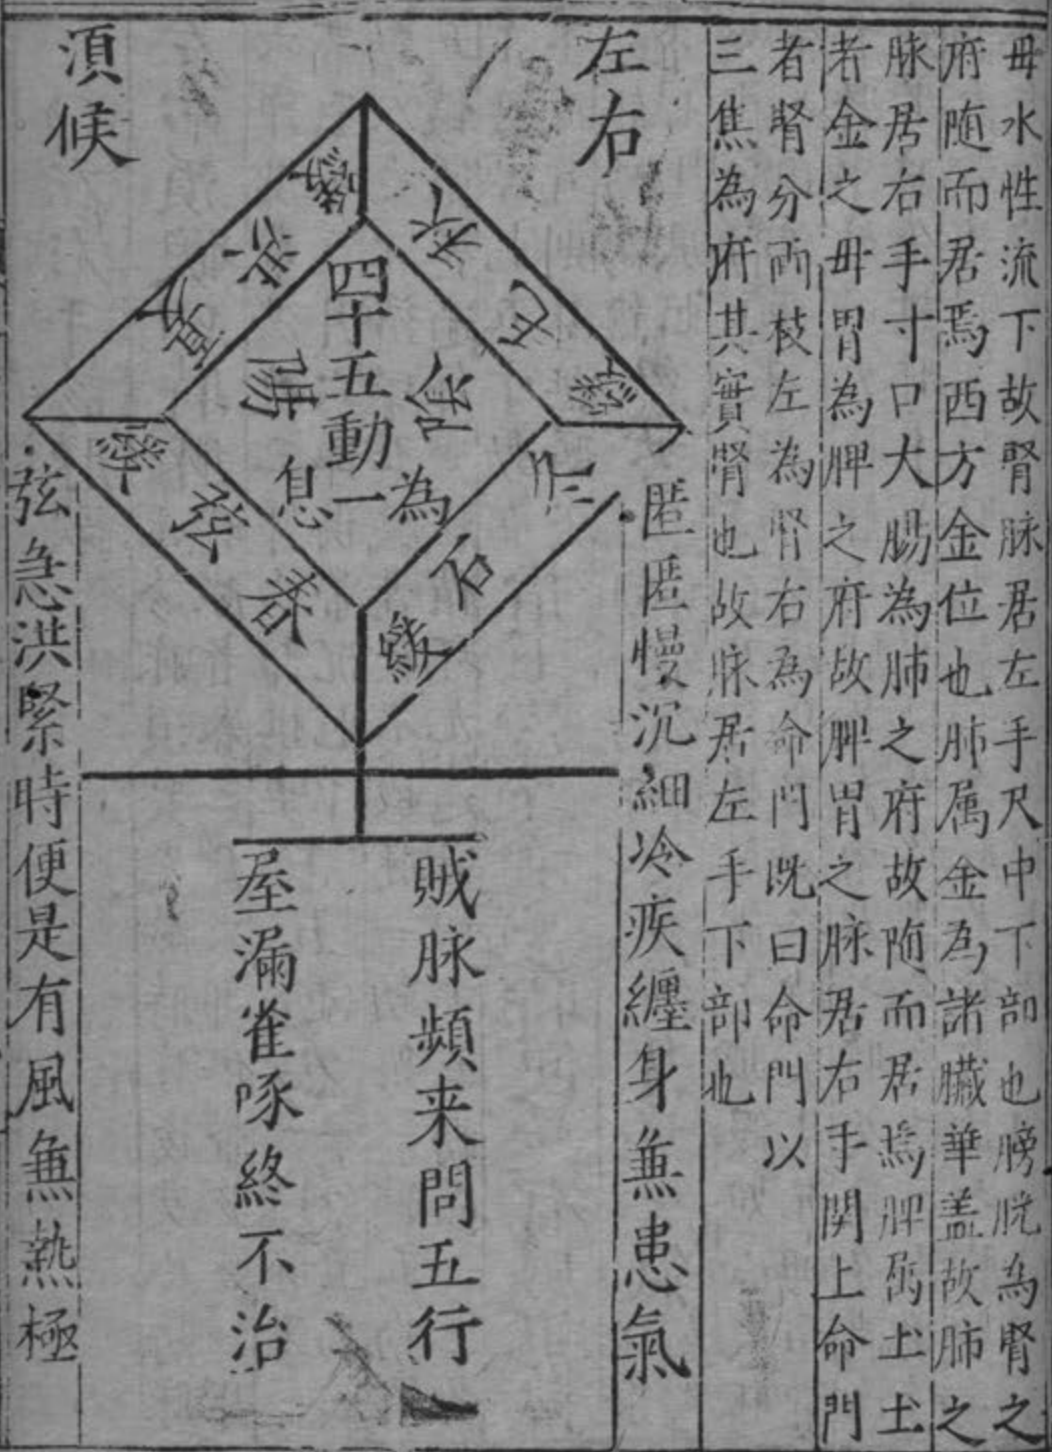 毋水性流下故腎脉居左手尺中下部也膀胱為腎之
府随而居焉西方金位也肺属金為諸臓華盖故肺之
脉居右手寸口大腸為肺之府故随而居焉脾属土土
者金之毋胃為脾之府故脾胃之脉居右手関上命門
者腎分両枝左為腎右為命門既曰命門以
三焦為府其實腎也故脉居左手下部也
左右
須候
四十五動一
為
息
石
弦
春
匿匿慢沉細冷疾纏身無患氣
賊脉頻来問五行
屋漏雀啄終不治
弦急洪緊時便是有風無熱極